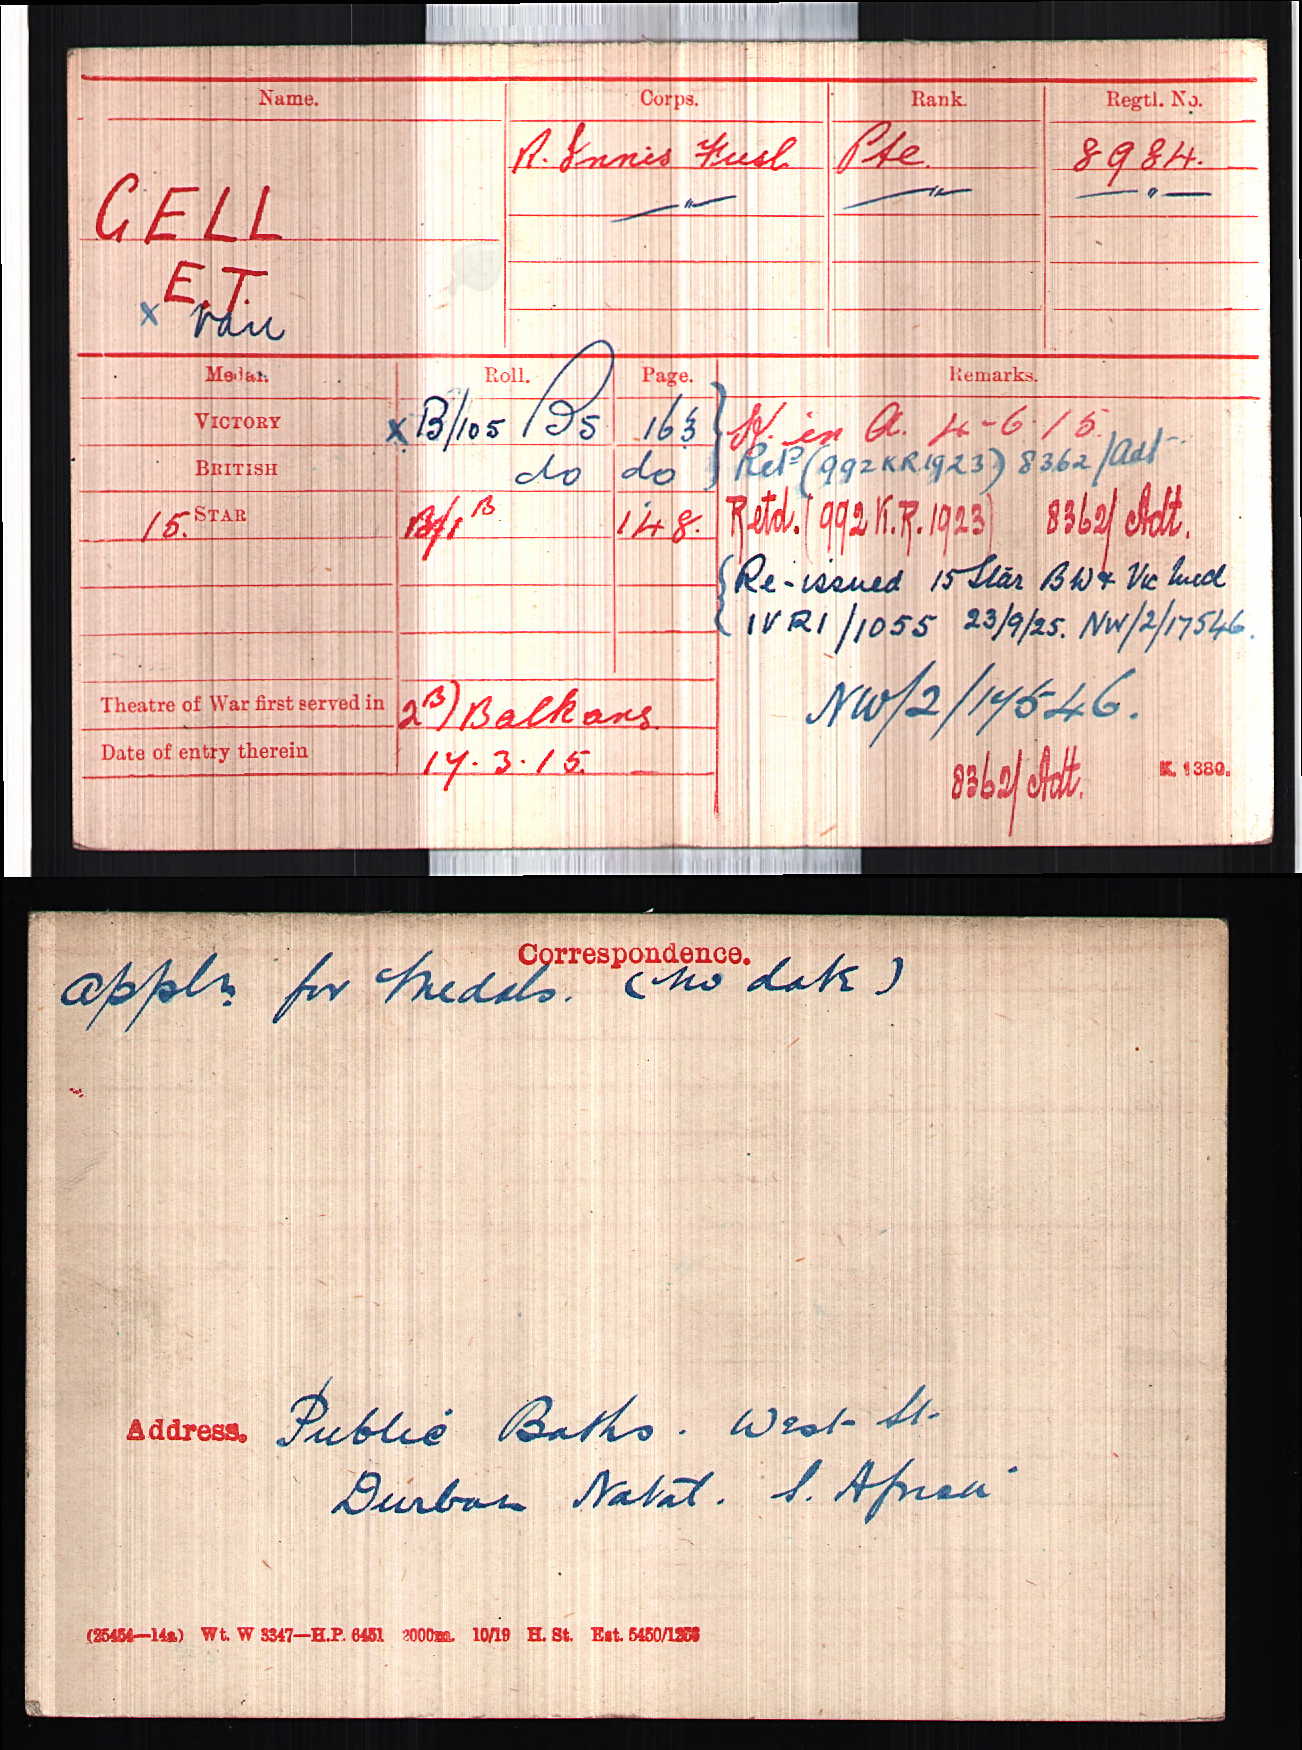 Name. Corps. Rank. Regtl. No.
R. Innis Fusl Pte. 8984.
— " — — " — — " —
GELL
E.T.
x
Medal. Roll. Page. Remarks.
VICTORY x B/105 B5 163 K. in A. 4-6-15.
BRITISH do do Retd (992KR1923) 8362/Adt
15. STAR B/1 B 148. Retd. (992 K.R. 1923) 8362/Adt.
Re-issued 15 Star BW & Vic Med
IVR1/1055 23/9/25. NW/2/17546.
Theatre of War first served in 2B) Balkans. NW/2/17546.
Date of entry therein 17.3.15.
8362/Adt. K. 1380.
Correspondence.
appln for Medals. (no date)
Address. Public Baths. West St.
Durban Natal. S. Africa
(25454—14a) Wt. W 3347—H.P. 6451 2000m. 10/19 H. St. Est. 5450/1253